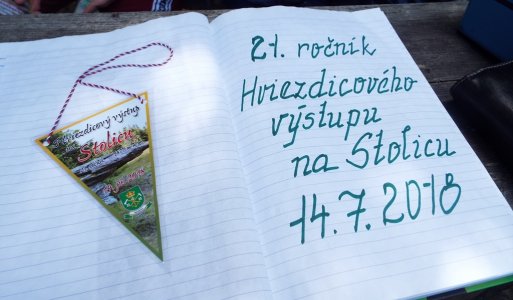 Hviezdicový výstup
na
Stolicu
21. ročník
Hviezdicového
výstupu
na Stolicu
14.7.2018